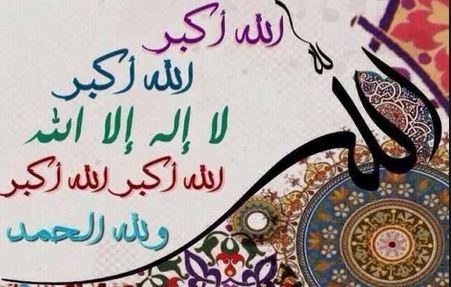 الله أكبر
الله أكبر
لا إله إلا الله
الله أكبر الله أكبر
ولله الحمد
الله